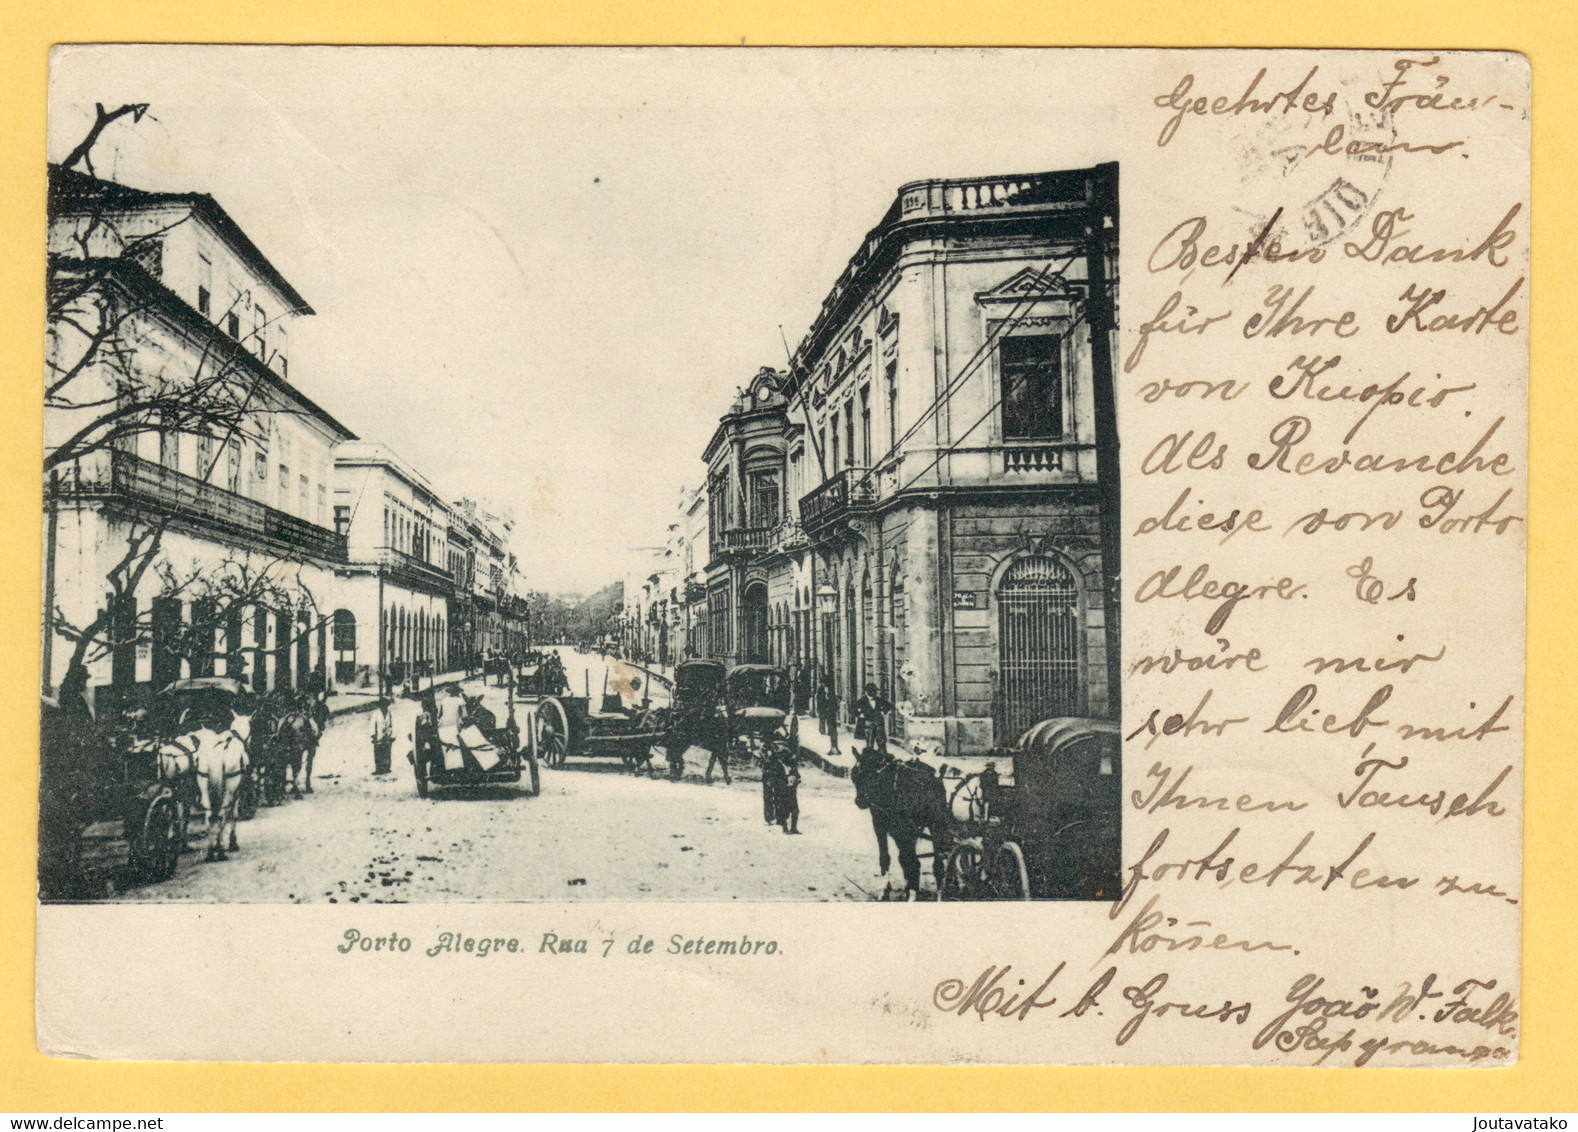 Geehrtes Fräu-
lein.
Besten Dank
für Ihre Karte
von Kuopio.
Als Revanche
diese von Porto
Alegre. Es
wäre mir
sehr lieb mit
Ihnen Tausch
fortsetzten zu
kön̄en.
Mit b. Gruss Joaõ W. Falk.
Sapyranga
Porto Alegre. Rua 7 de Setembro.
RIO
Joutavatako